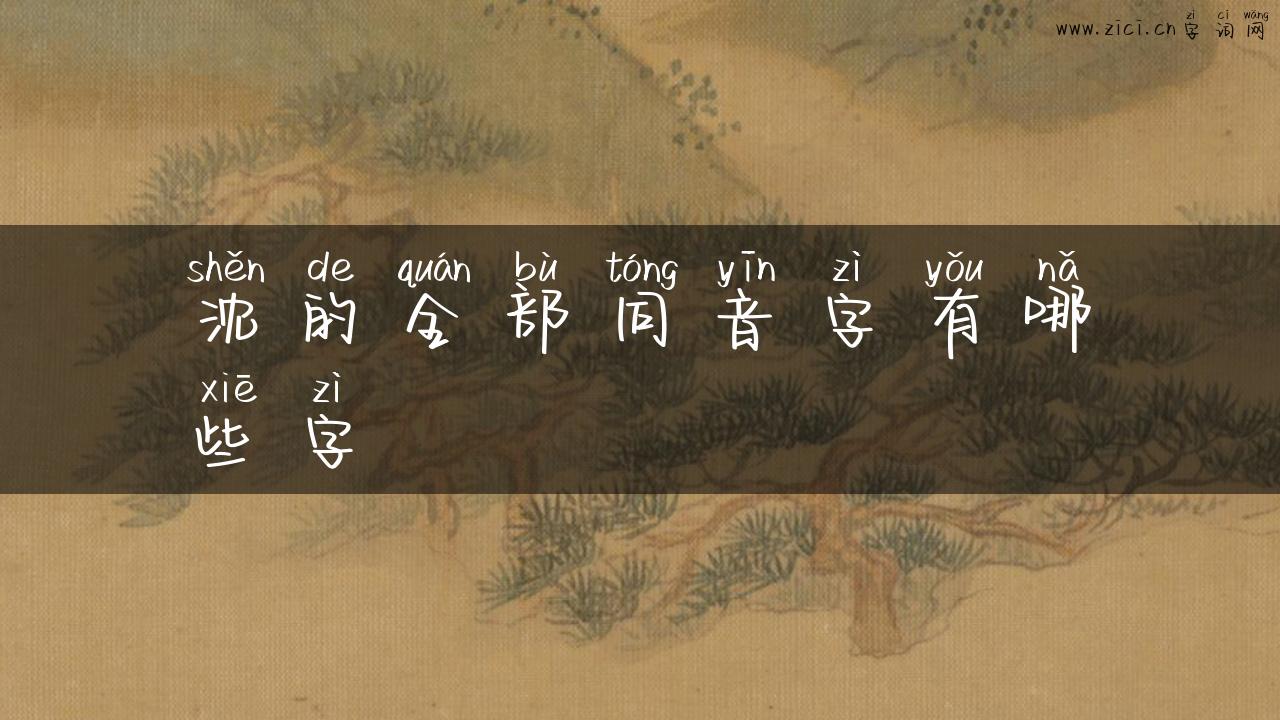 zì cí wǎng
www.zici.cn 字 词 网
shěn de quán bù tóng yīn zì yǒu nǎ
沈 的 全 部 同 音 字 有 哪
xiē zì
些 字